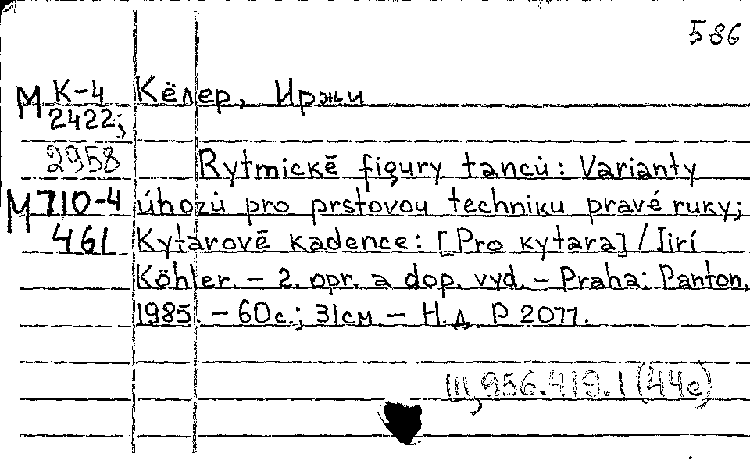 586
М К-4 Кёлер, Иржи
2422;
2958 Rytmické figury tanců: Varianty
М 710-4 úhozů pro prstovou techniku pravé ruky;
461 Kytarové kadence: [Pro kytara] / Jirí
Köhler. – 2. opr. a dop. vyd. – Praha: Panton,
1985. – 60 с.; 31 см. – Н. д. P 2077.
Ш, 956.419.1 (44е)